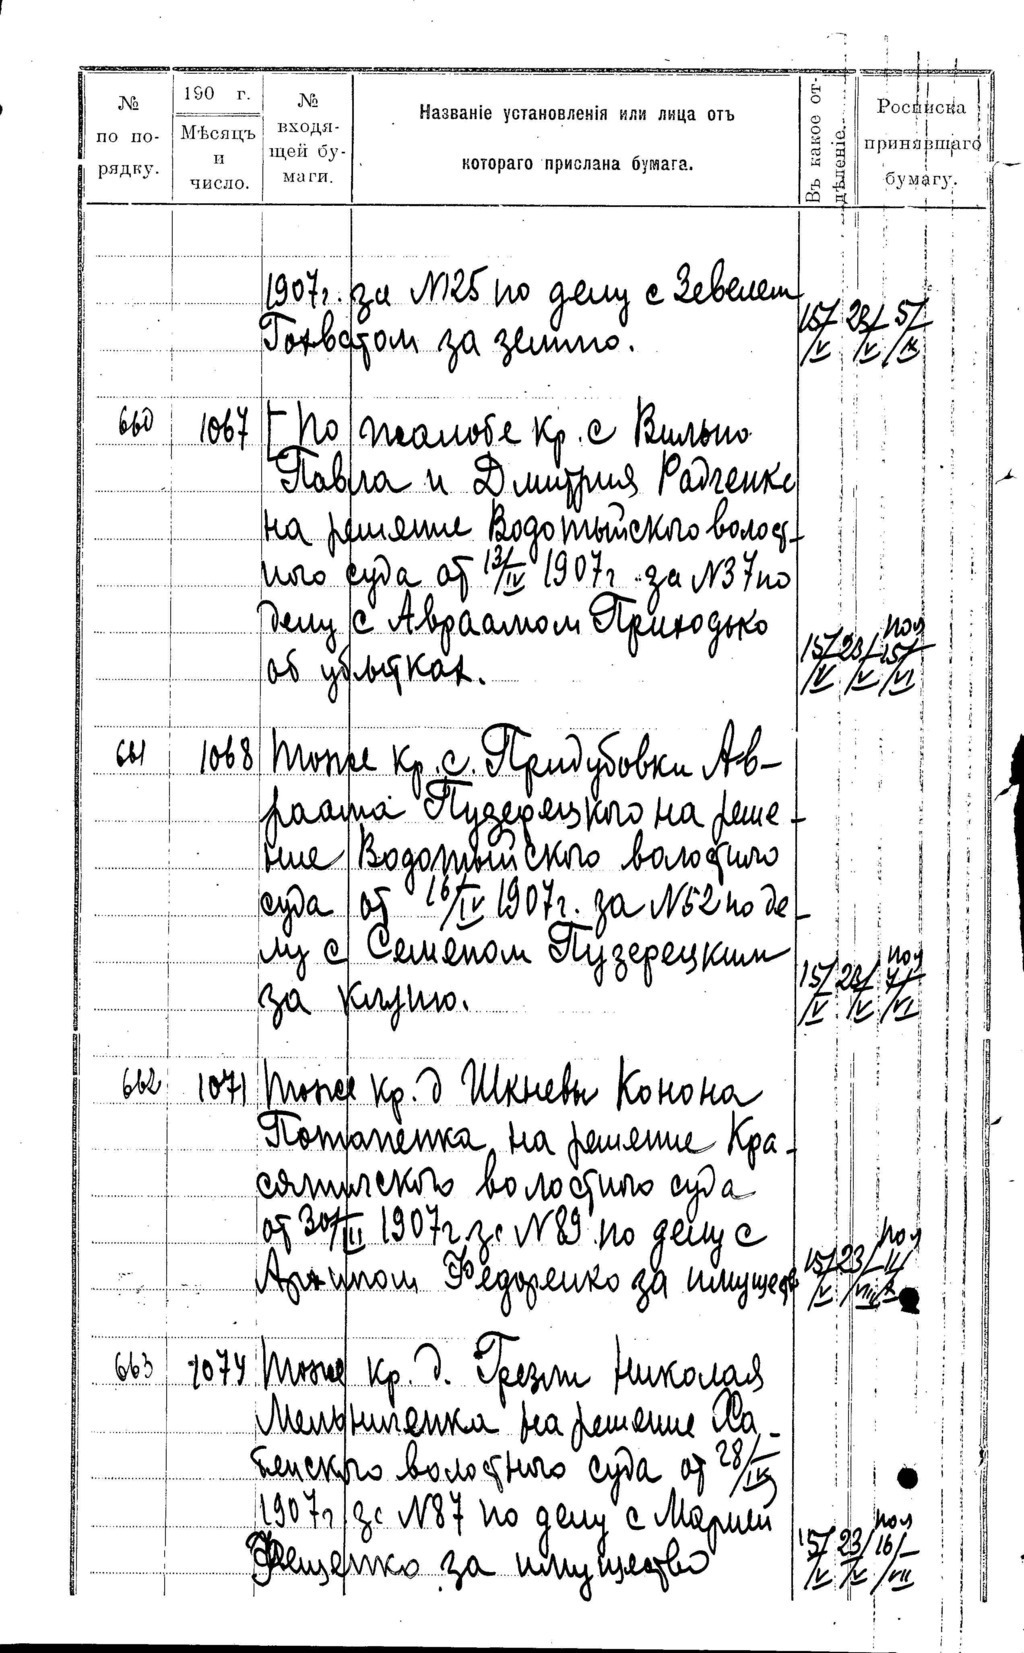 № по порядку.
190 г.
Мѣсяцъ и число.
№ входящей бумаги.
Названіе установленія или лица отъ
котораго прислана бумага.
Въ какое отдѣленіе.
Росписка принявшаго бумагу.
1907г. за №125 по делу с Зевелем
Гохватом за землю.
15/V 23/V 5/IX
660 1067 По жалобе кр. с Вильно
Павла и Дмитрия Радченко
на решение Водотыйского волост-
ного суда от 13/IV 1907г. за №37 по
делу с Авраамом Приходько
об убытках.
15/V 23/V пол 15/VI
661 1068 Тоже кр. с. Придубовки Ав-
раама Пузерецкого на реше-
ние Водотыйского волостного
суда от 16/IV 1907г. за №52 по де-
лу с Семеном Пузерецким
за клуню.
15/V 23/V пол 7/VI
662 1071 Тоже кр. д Шкневы Конона
Потапенка на решение Кра-
сятичского волостного суда
от 30/II 1907г. за №89 по делу с
Архипом Федоренко за имуществ
15/V 23/VIII пол
663 1074 Тоже кр. д. Грезли Николая
Мельниченка на решение Ха-
бенского волостного суда от 28/IV
1907г. за №87 по делу с Марией
Фещенко за имущество
15/V 23/V пол 16/VII